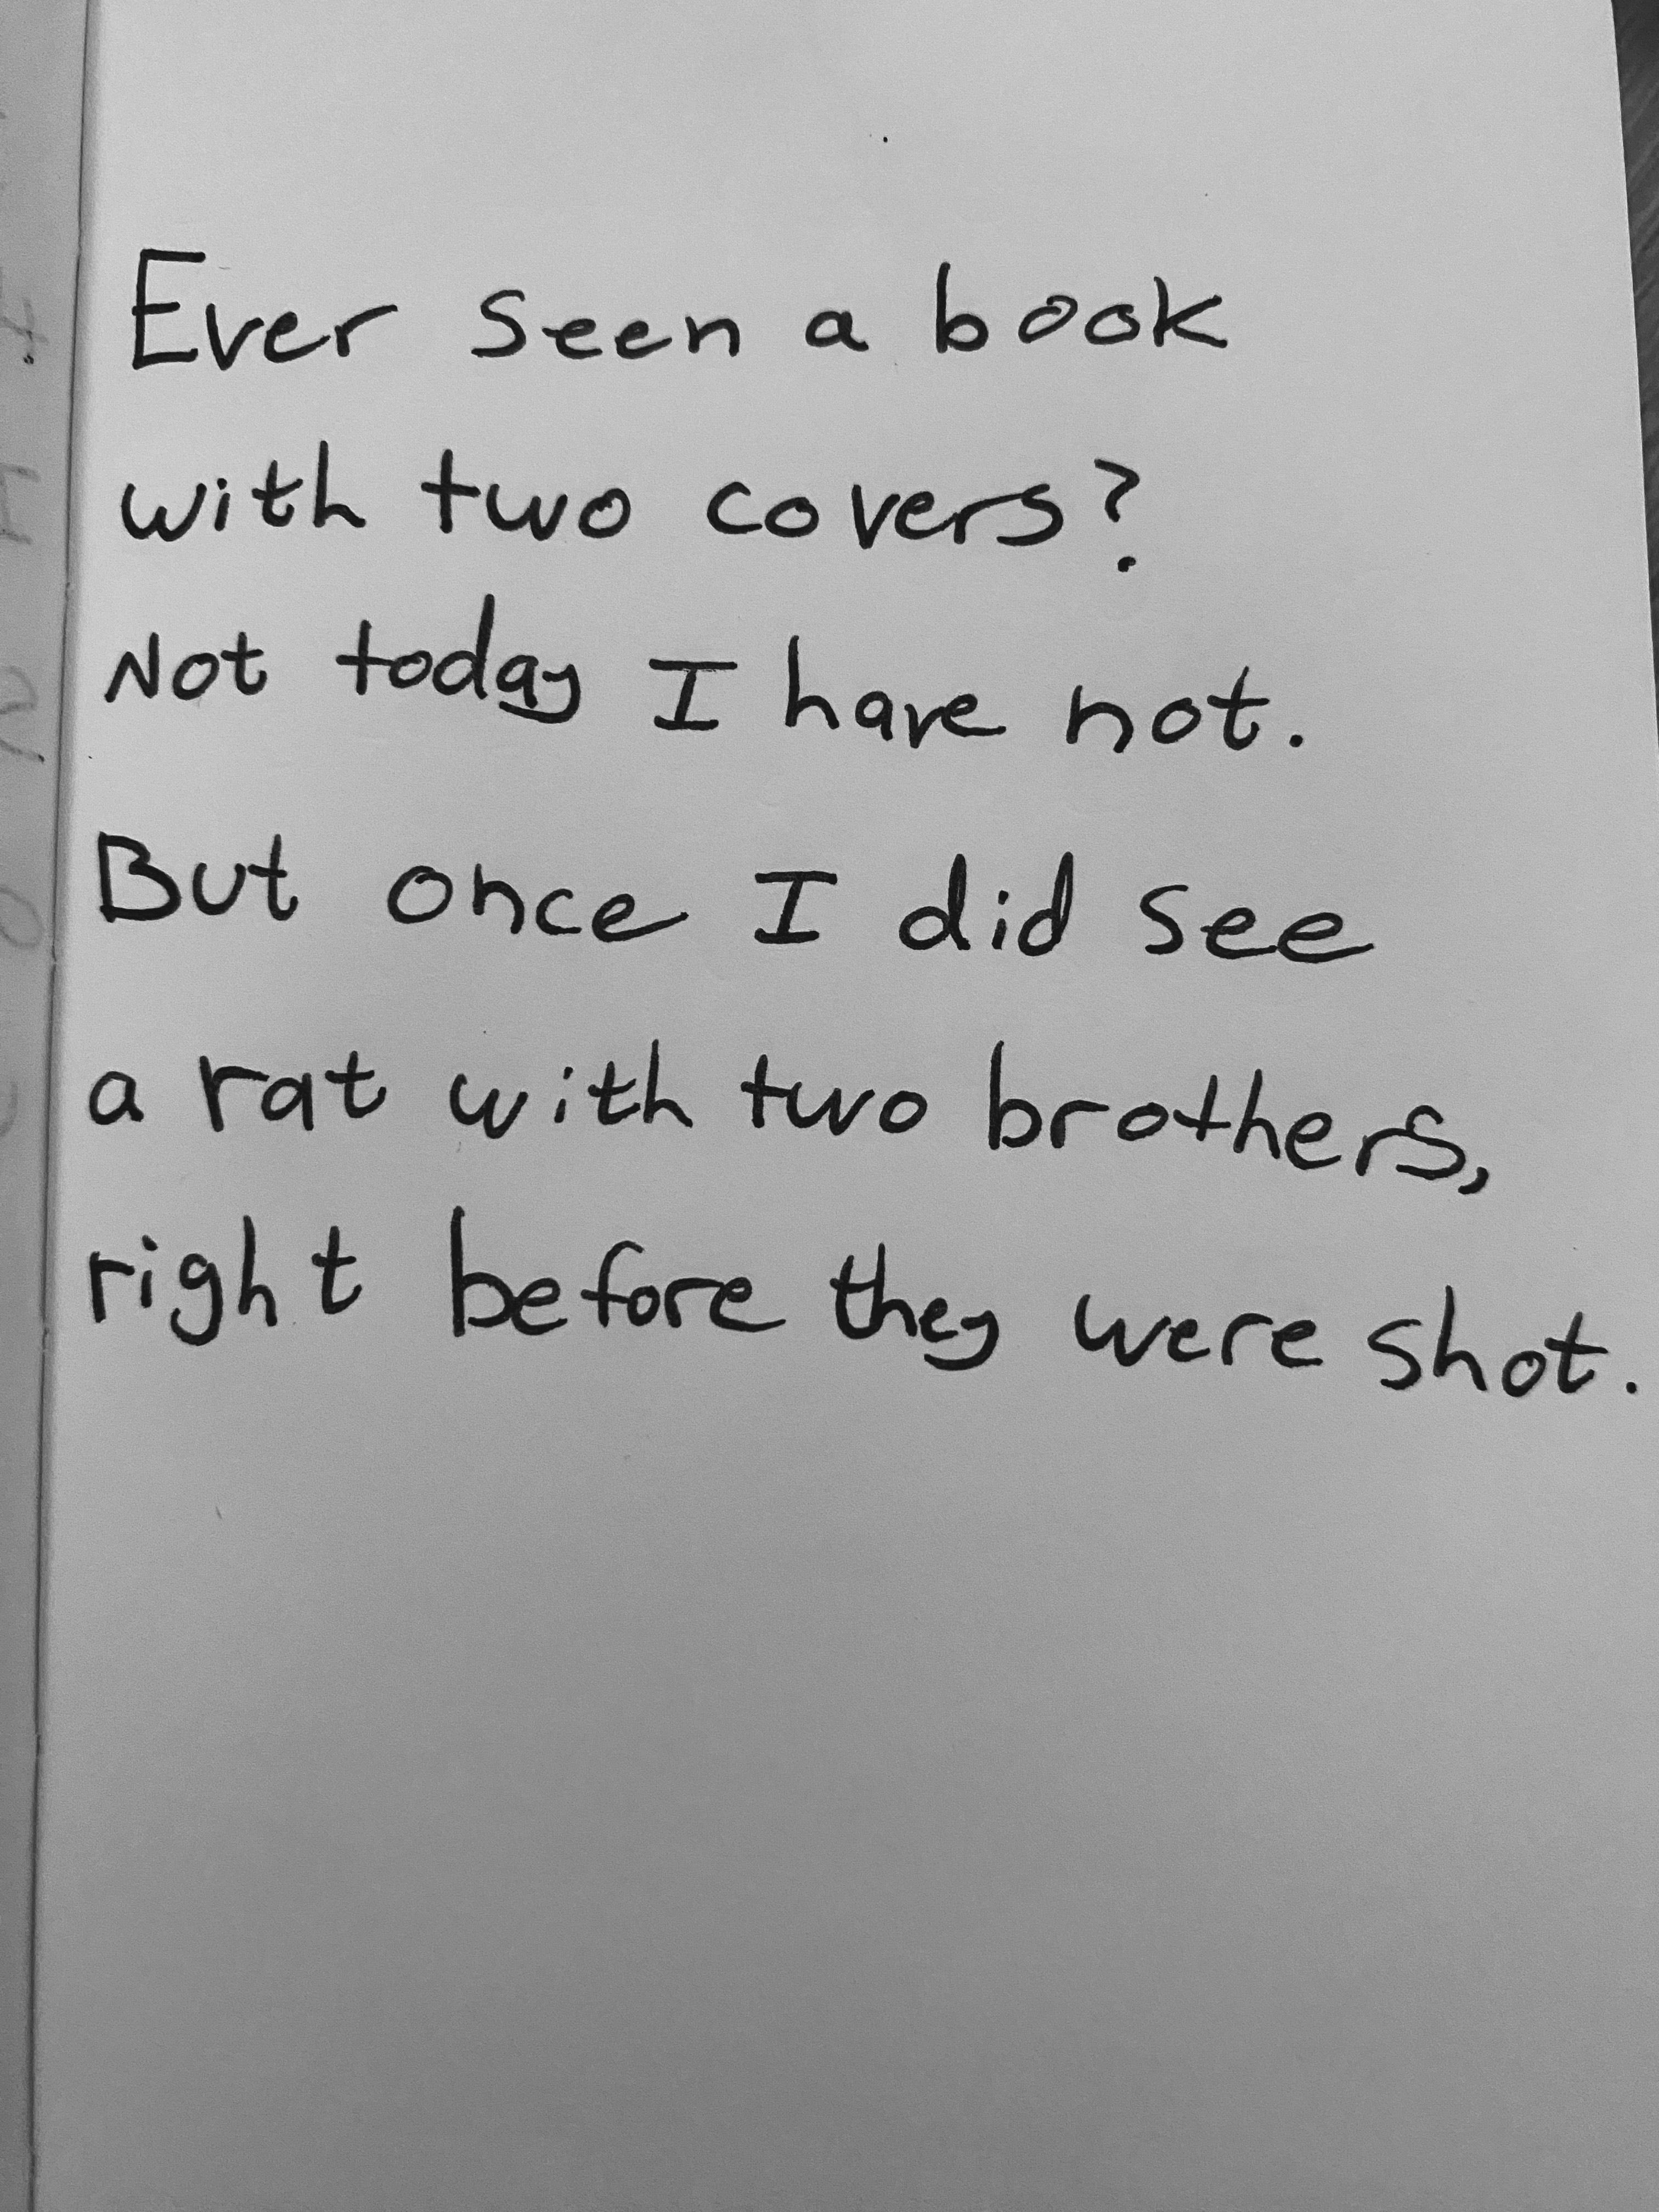 Ever seen a book
with two covers?
Not today I have not.
But once I did see
a rat with two brothers,
right before they were shot.